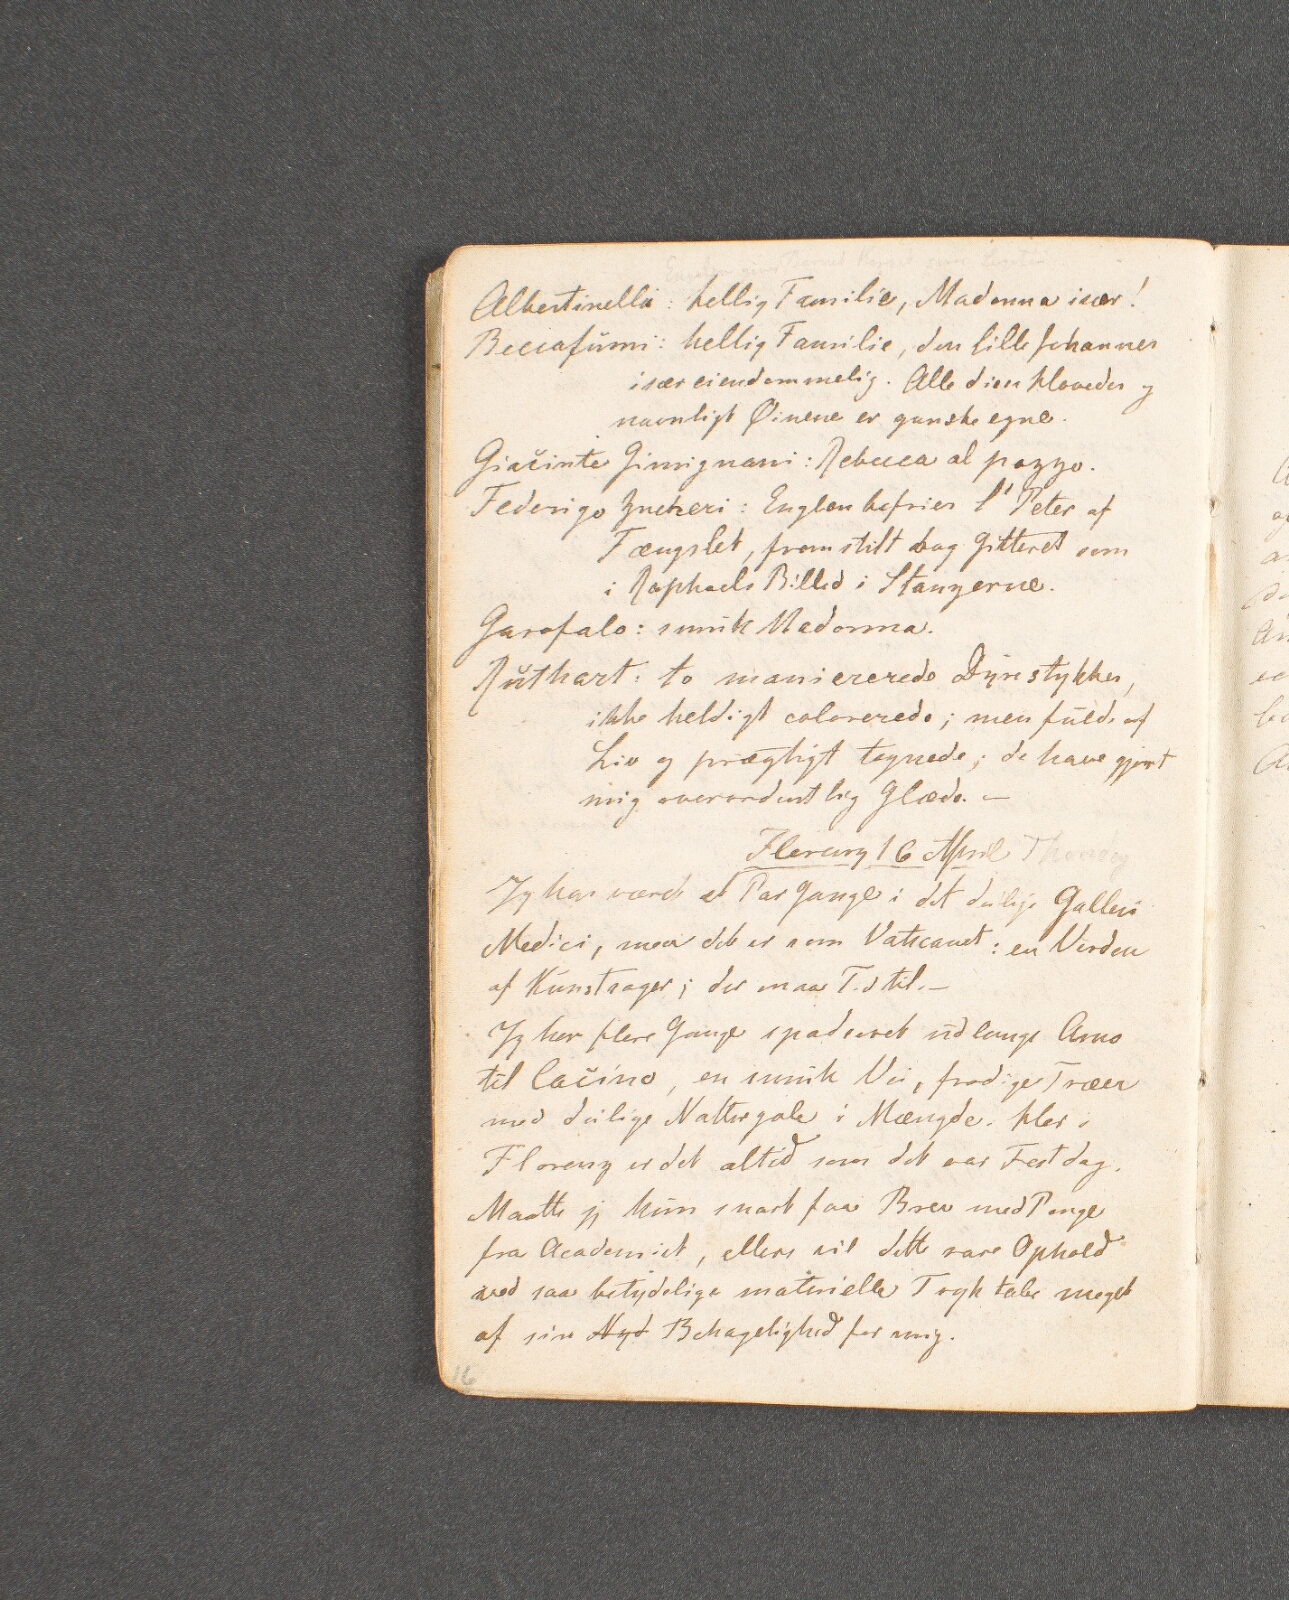 Albertinelli: hellig Familie, Madonna især!
Beccafŭmi: hellig Familie, den lille Johannes
især eiendommelig. Alle disse Hoveder og
navnligt Øinene er ganske egne.
Giacinto Gimignani: Rebecca al pozzo.
Federigo Zucheri: Englen befrier St Peter af
Fængslet, fremstilt bag Gitteret som
i Raphaels Billed i Stanzerne.
Garofalo: smŭk Madonna.
Rŭthart: to maniererede Dÿrestykker,
ikke heldigt colorerede; men fŭlde af
Liv og prægtigt tegnede; de have gjort
mig overordentlig Glæde. –
Florenz 16 April Thorsdag
Jeg har været et Par Gange i det deilige Galleri
Medici, men det er som Vaticanet: en Verden
af Kŭnstsager; der maa Tid til. –
Jeg har flere Gange spadseret ŭd langs Arno
til Cacino, en smŭk Vei, frodige Træer
med deilige Nattergale i Mængde. Her i
Florenz er det altid som det var Festdag.
Maatte jeg kŭn snart faa Brev med Penge
fra Academiet, ellers vil dette rare Ophold
ved saa betydelige materielle Tryk tabe meget
af sin Nyd Behagelighed for mig.
16